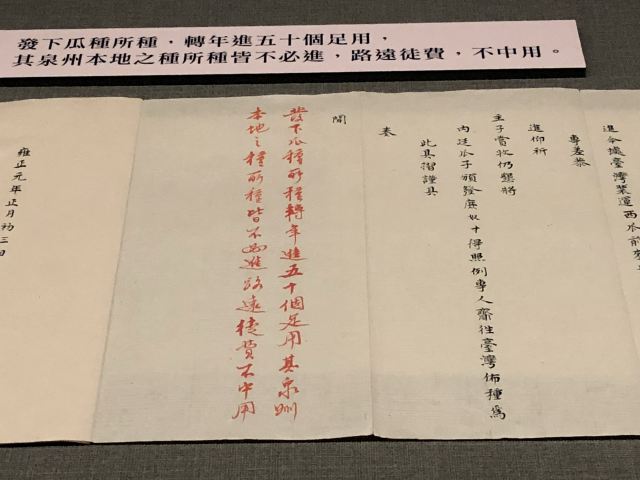 發下瓜種所種，轉年進五十個足用，
其泉州本地之種所種皆不必進，路遠徒費，不中用。
進今據臺灣裝運西瓜前
專差恭
進仰祈
主子賞收仍懇將
內廷瓜子頒發庶奴才得照例專人齎往臺灣佈種為
此具摺謹具
奏
聞
發下瓜種所種轉年進五十個足用其泉州
本地之種所種皆不必進路遠徒費不中用
雍正元年正月初三日